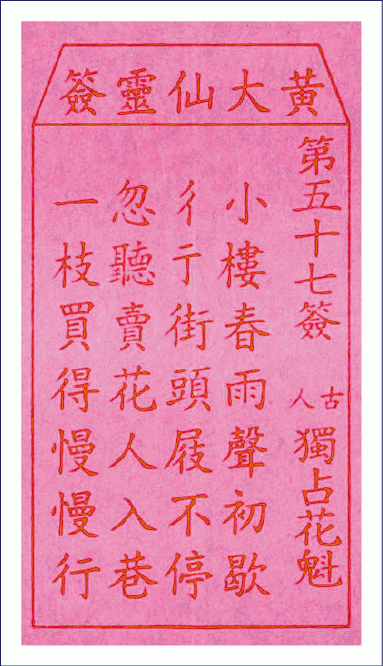 黃大仙靈簽
第五十七簽 古人 獨占花魁
小樓春雨聲初歇
彳亍街頭屐不停
忽聽賣花人入巷
一枝買得慢慢行